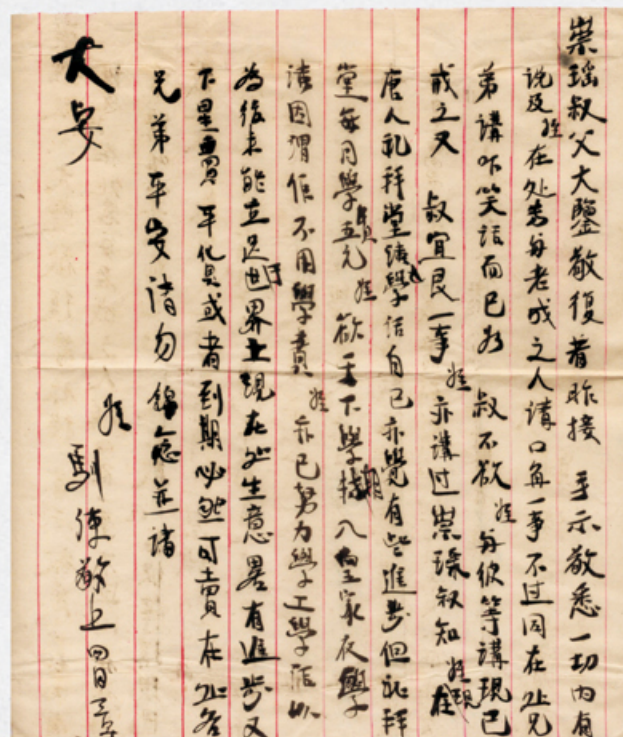 崇瑶叔父大鑒敬復者昨接 手示敬悉一切内有
说及姪在处劳每老成之人講口角一事不过因在处兄
弟講吓笑話而已如 叔不欲姪每彼等講現已
戒之又 叔宜良一事姪亦講过崇瑧叔知姪現在
唐人礼拜堂讀學話自己亦覺有些進步但礼拜
堂每月學費五元姪欲手下學期入皇家夜學
讀因渭佢不用學費姪亦已努力學工學話以
為後来能立足于世界上現在处生意畧有進步又
下里賣平化具或者到期必然可賣在处各
兄弟平安请勿錦念並请
大安
姪 馴 敬上四月三